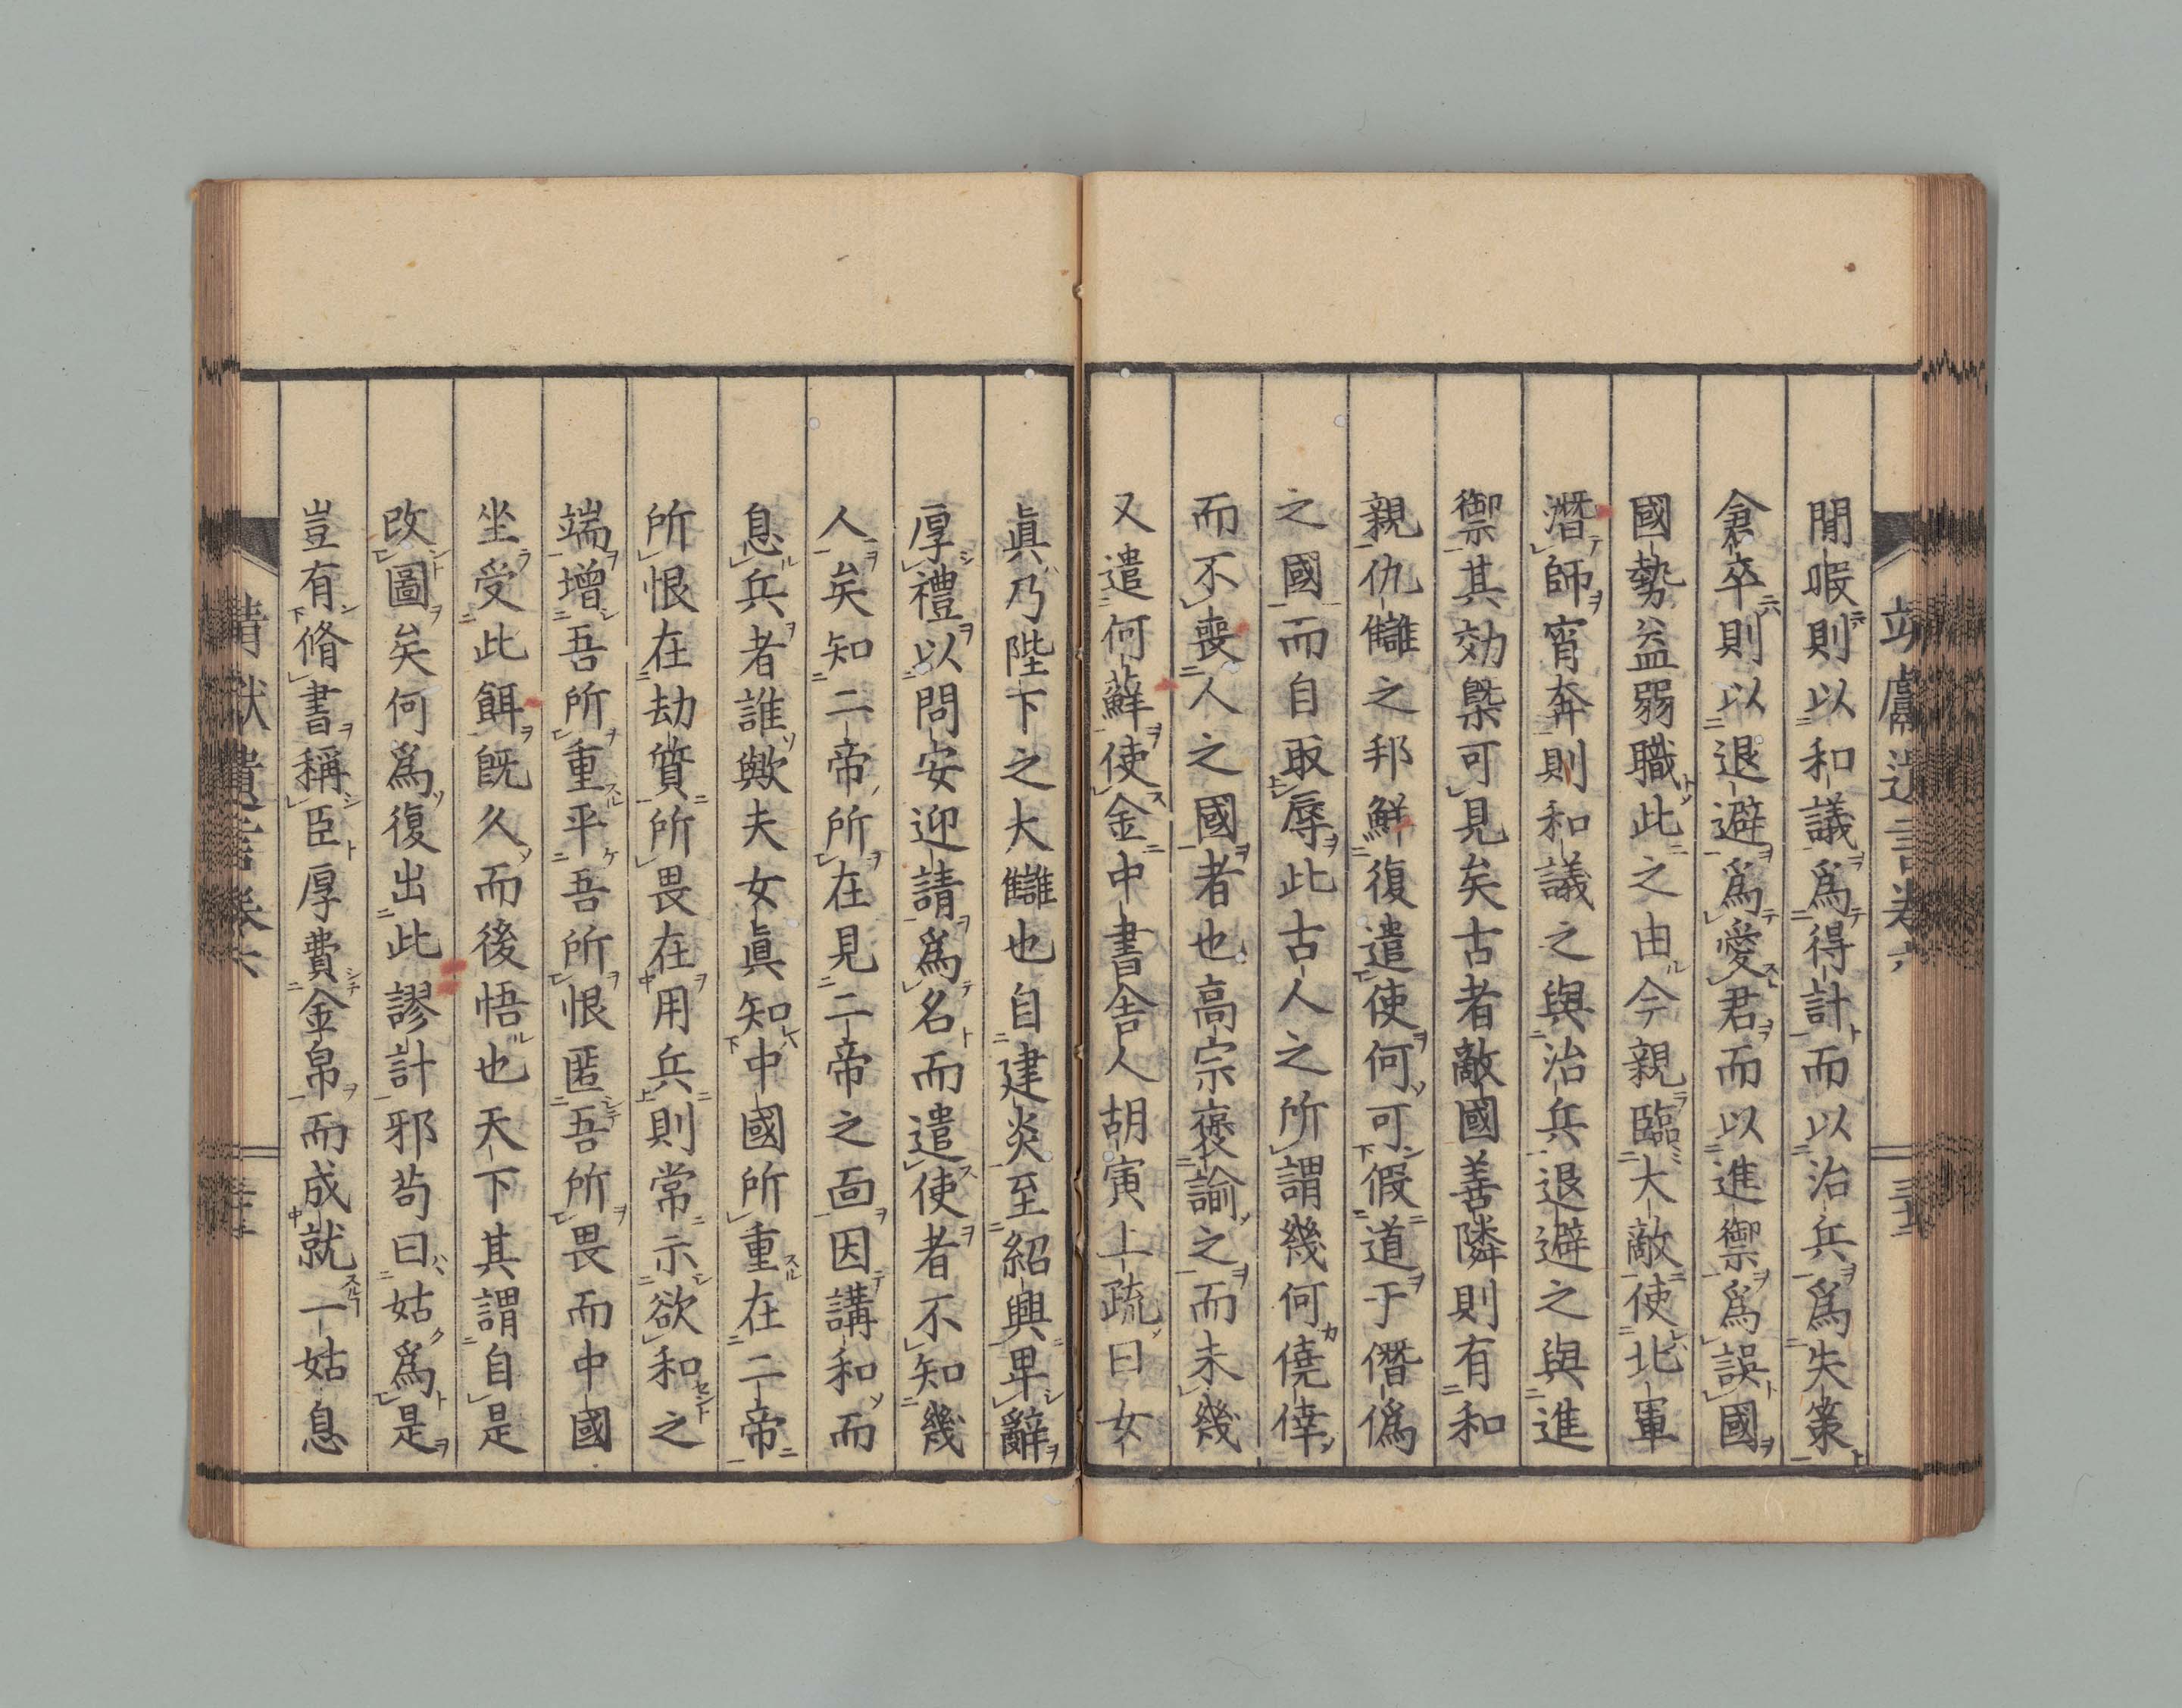 靖獻遺言卷六
閒暇則以和議爲得計而以治兵爲失策
倉卒則以退避爲愛君而以進禦爲誤國
國勢益弱職此之由今親臨大敵使北軍
潛師宵奔則和議之與治兵退避之與進
禦其効槩可見矣古者敵國善隣則有和
親仇讎之邦鮮復遣使何可假道于僭僞
之國而自取辱此古人之所謂幾何僥倖
而不喪人之國者也高宗褒諭之而未幾
又遣何蘚使金中書舍人胡寅上疏曰女
眞乃陛下之大讎也自建炎至紹興卑辭
厚禮以問安迎請爲名而遣使者不知幾
人矣知二帝所在見二帝之面因講和而
息兵者誰歟夫女眞知中國所重在二帝
所恨在劫質所畏在用兵則常示欲和之
端增吾所重平吾所恨匿吾所畏而中國
坐受此餌既久而後悟也天下其謂自是
改圖矣何爲復出此謬計邪苟曰姑爲是
豈有脩書稱臣厚費金帛而成就一姑息
靖獻遺言卷六